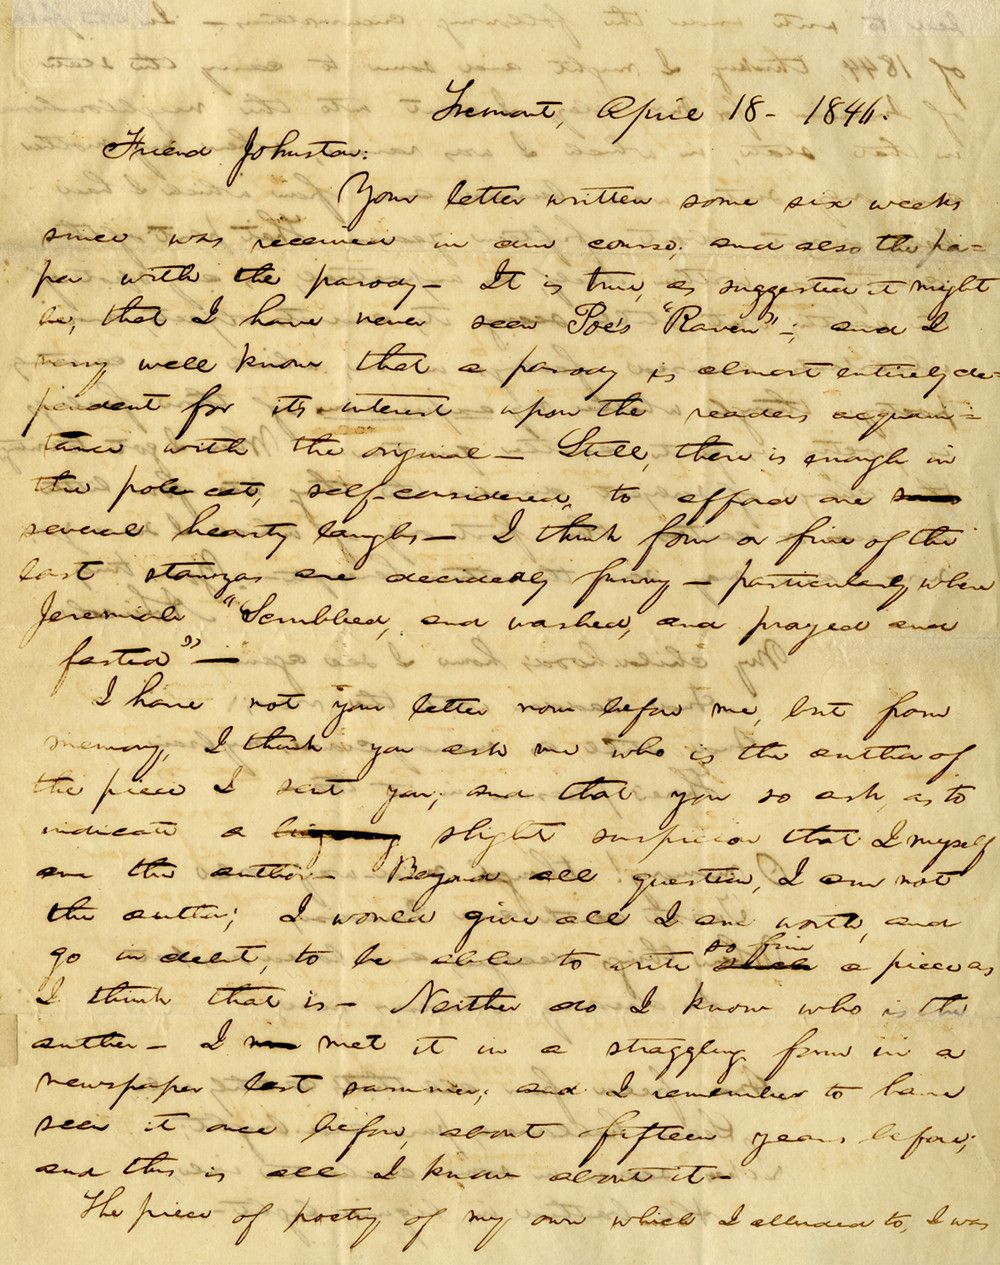 Tremont, April 18 - 1846.
Friend Johnston:
Your letter written some six weeks
since was received in due course, and also the pa-
per with the parody - It is true, as suggested it might
be, that I have never seen Poe's "Raven"-; and I
very well know that a parody is almost entirely de-
pendent for its interest upon the readers acquain-
tance with the original - Still, there is enough in
the pole-cat, self-considered, to afford one
several hearty laughs - I think four or five of the
last stanzas are decidedly funny - particularly when
Jeremiah "Scrubbed, and washed, and prayed and
fasted" -
I have not your letter now before me, but from
memory, I think you ask me who is the author of
the piece I sent you; and that you so ask, as to
indicate a slight suspicion that I myself
am the author - Beyond all question, I am not
the author; I would give all I am worth, and
go in debt, to be able to write so fine a piece as
I think that is - Neither do I know who is the
author - I met it in a straggling form in a
newspaper last summer, and I remember to have
seen it once before, about fifteen years before;
and this is all I know about it -
The piece of poetry of my own which I alluded to, I was